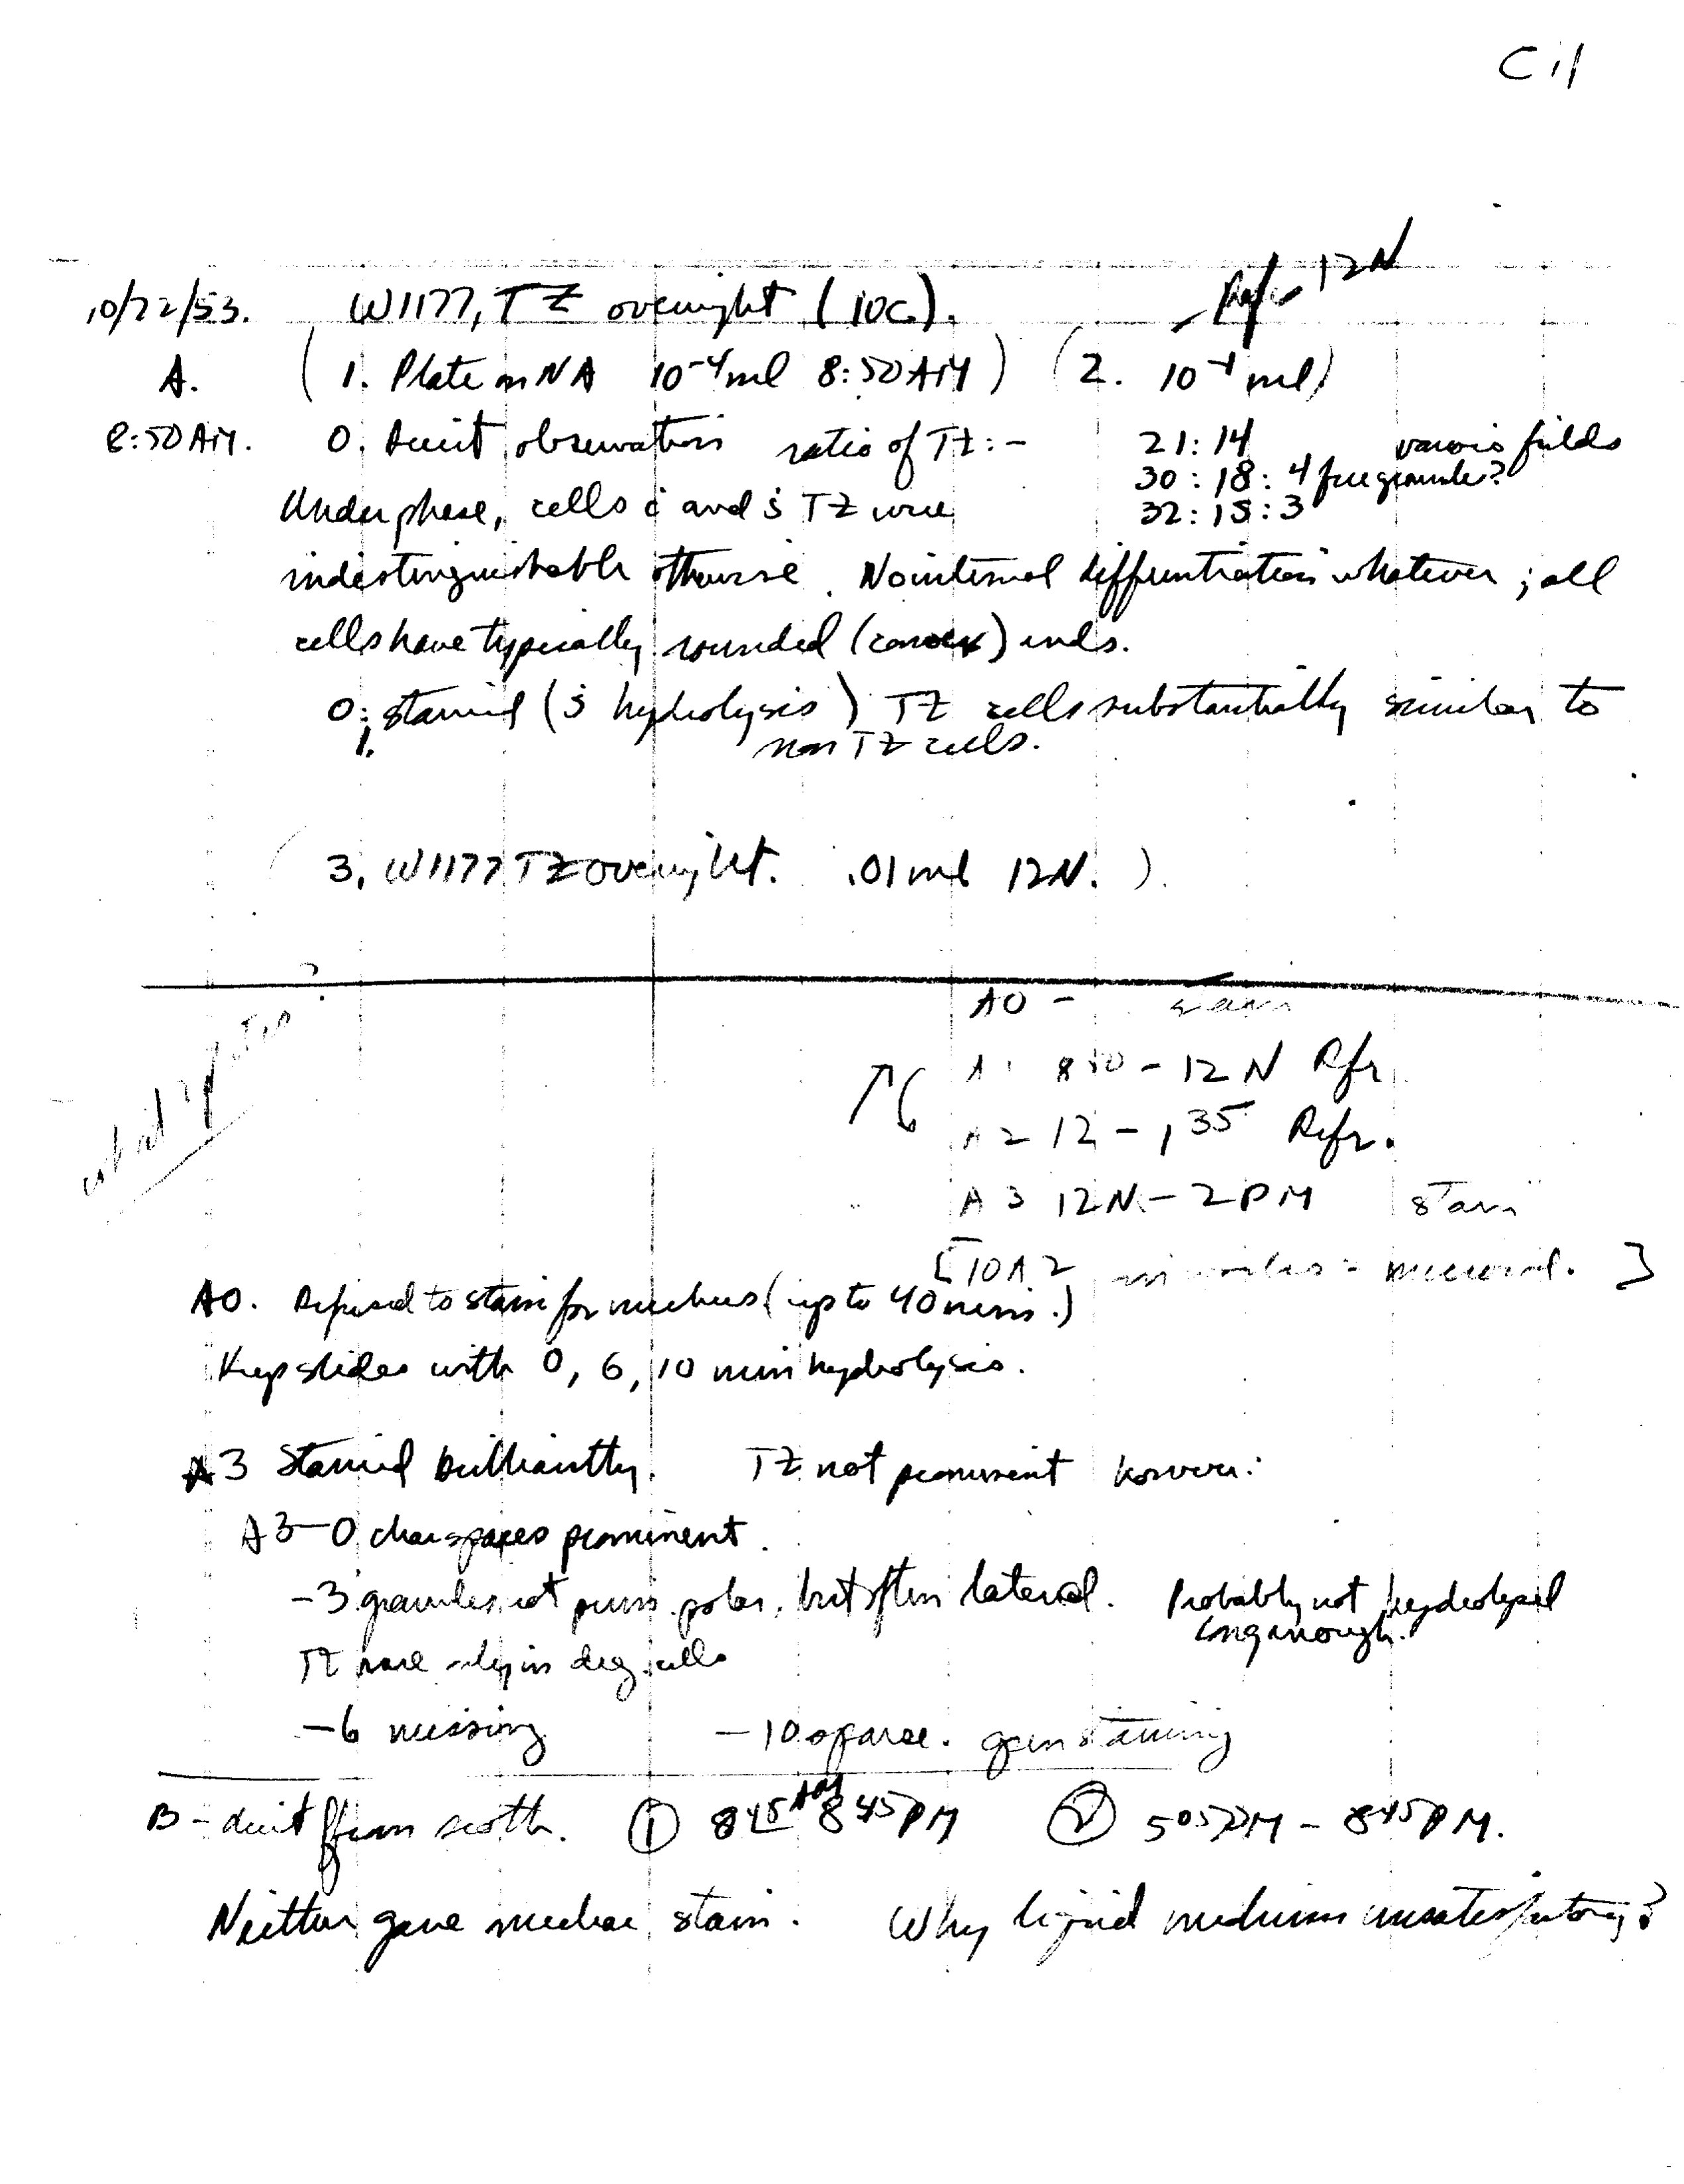 C 11
Refr 12N
10/22/53. W1177, TZ overnight (10C).
A. (1. Plate on NA 10⁻⁴ml 8:50AM) (2. 10⁻⁴ ml)
8:50AM. 0. Direct observation ratio of TZ:- 21:14 various fields
30:18:4 free granules?
Under phase, cells c̄ and s̄ TZ were 32:15:3
indistinguishable otherwise. No internal differentiation whatever; all
cells have typically rounded (convex) ends.
0; stained (s̄ hydrolysis) TZ cells substantially similar to
1. non TZ cells.
(3. W1177 TZ overnight. .01ml 12N.)
?
A0 - stain
A1 8⁵⁰ - 12N Refr.
A2 12 - 1³⁵ Refr.
A3 12N - 2PM stain
[10A2 ]
A0. Refused to stain for nucleus (up to 40 mins.)
Keep slides with 0, 6, 10 min hydrolysis.
A3 Stained brilliantly. TZ not prominent however:
A3-0 clear spaces prominent.
-3 granules not polar, but often lateral. Probably not hydrolysed
long enough.
TZ rare only in deg. cells
-6 missing -10 sparse. staining
B - direct from broth. ① 8⁴⁵AM 8⁴⁵PM ② 5⁰⁵PM - 8⁴⁵PM.
Neither gave nuclear stain. Why liquid medium unsatisfactory?